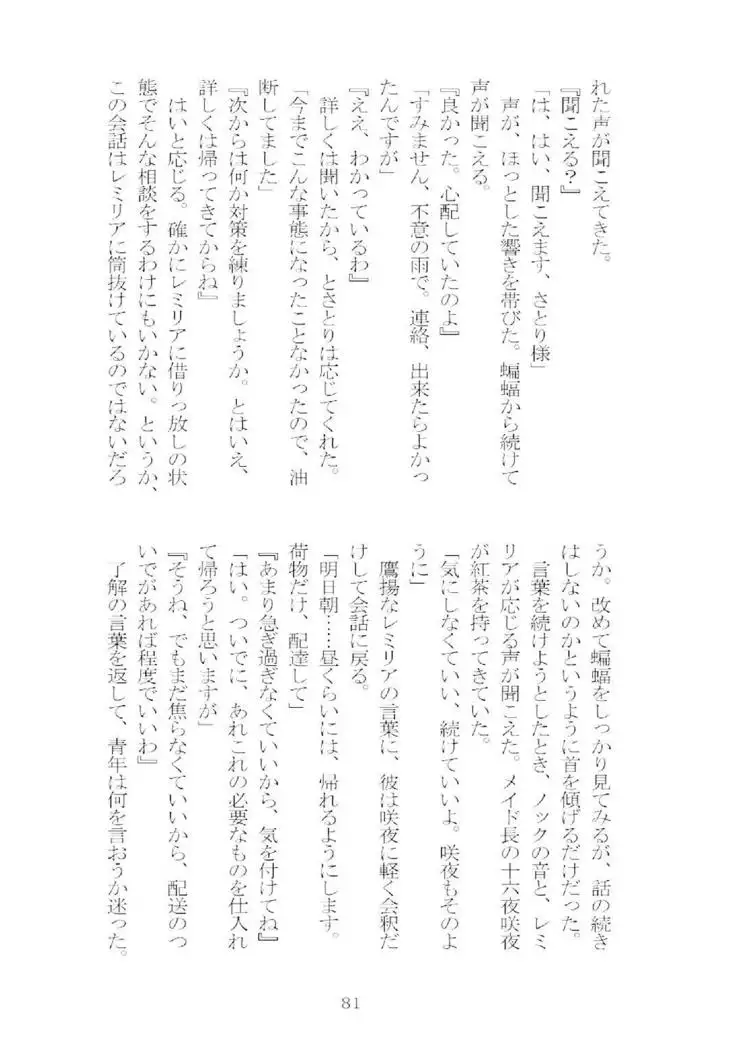 れた声が聞こえてきた。
『聞こえる？』
「は、はい、聞こえます、さとり様」
声が、ほっとした響きを帯びた。蝙蝠から続けて
声が聞こえる。
『良かった。心配していたのよ』
「すみません、不意の雨で。連絡、出来たらよかっ
たんですが」
『ええ、わかっているわ』
詳しくは聞いたから、とさとりは応じてくれた。
「今までこんな事態になったことなかったので、油
断してました」
『次からは何か対策を練りましょうか。とはいえ、
詳しくは帰ってきてからね』
はいと応じる。確かにレミリアに借りっ放しの状
態でそんな相談をするわけにもいかない。というか、
この会話はレミリアに筒抜けているのではないだろ
うか。改めて蝙蝠をしっかり見てみるが、話の続き
はしないのかというように首を傾げるだけだった。
言葉を続けようとしたとき、ノックの音と、レミ
リアが応じる声が聞こえた。メイド長の十六夜咲夜
が紅茶を持ってきていた。
「気にしなくていい、続けていいよ。咲夜もそのよ
うに」
鷹揚なレミリアの言葉に、彼は咲夜に軽く会釈だ
けして会話に戻る。
「明日朝……昼くらいには、帰れるようにします。
荷物だけ、配達して」
『あまり急ぎ過ぎなくていいから、気を付けてね』
「はい。ついでに、あれこれの必要なものを仕入れ
て帰ろうと思いますが」
『そうね、でもまだ焦らなくていいから、配送のつ
いでがあれば程度でいいわ』
了解の言葉を返して、青年は何を言おうか迷った。
81